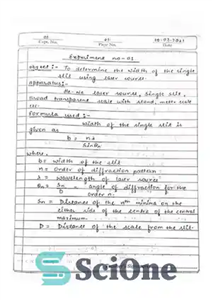 Expt. No.
Page No.
Date
Experiment no-01
Object :- To determine the width of the single
slit using laser source.
Apparatus:-
He-Ne laser source, single slit,
transparent scale with stand, meter scale
etc.
Formula used :-
width of the single slit is
given as
b = nλ
Sinθn
where,
b = width of the slit
n = order of diffraction pattern
λ = wavelength of laser source
θn = Sn = angle of diffraction for the
D order n.
Sn = Distance of the nth minima on the
either side of the centre of the central
maximum.
D = Distance of the scale from the slit.
SciOne